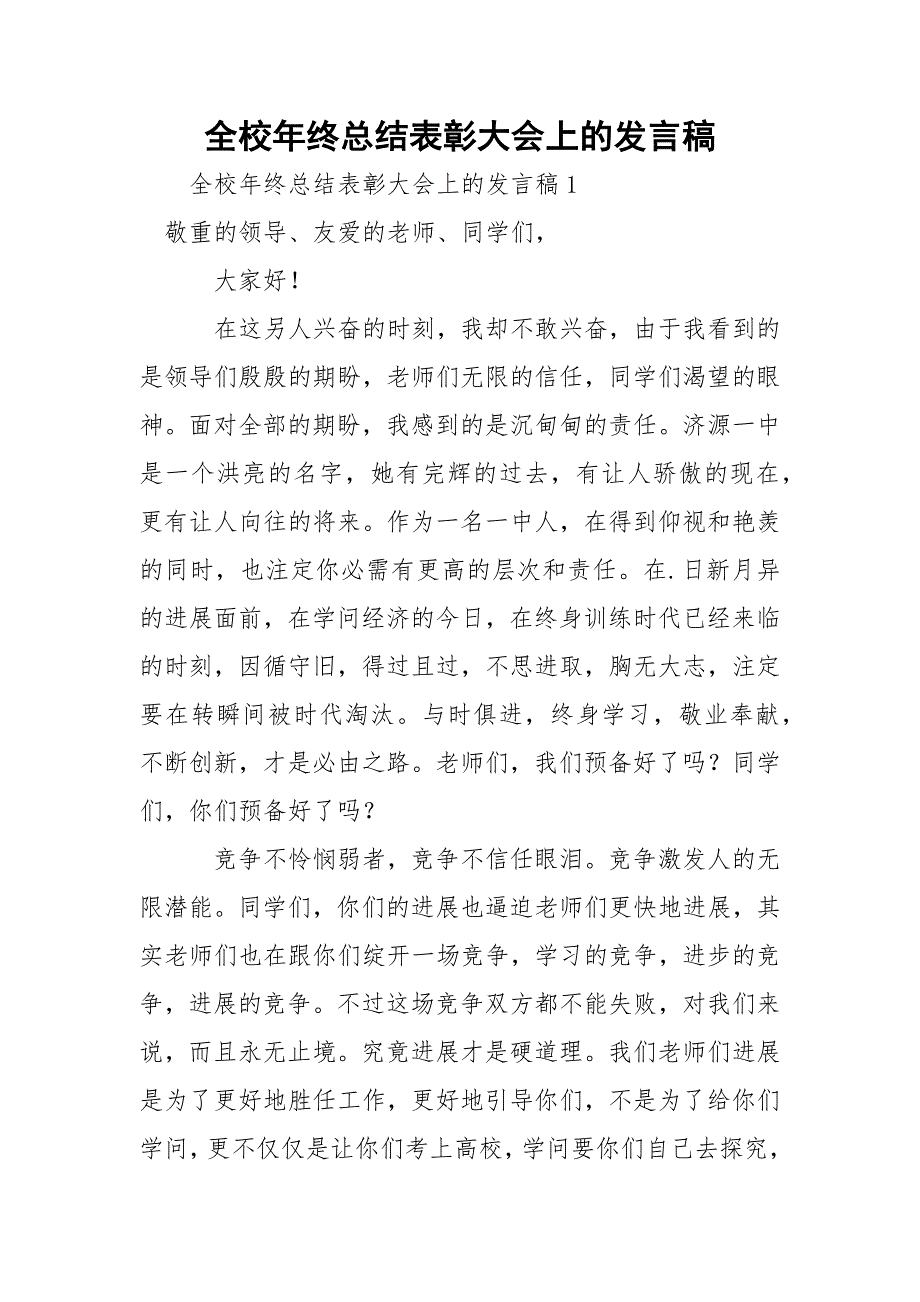 全校年终总结表彰大会上的发言稿
全校年终总结表彰大会上的发言稿1
敬重的领导、友爱的老师、同学们，
大家好！
在这另人兴奋的时刻，我却不敢兴奋，由于我看到的
是领导们殷殷的期盼，老师们无限的信任，同学们渴望的眼
神。面对全部的期盼，我感到的是沉甸甸的责任。济源一中
是一个洪亮的名字，她有完辉的过去，有让人骄傲的现在，
更有让人向往的将来。作为一名一中人，在得到仰视和艳羡
的同时，也注定你必需有更高的层次和责任。在.日新月异
的进展面前，在学问经济的今日，在终身训练时代已经来临
的时刻，因循守旧，得过且过，不思进取，胸无大志，注定
要在转瞬间被时代淘汰。与时俱进，终身学习，敬业奉献，
不断创新，才是必由之路。老师们，我们预备好了吗？同学
们，你们预备好了吗？
竞争不怜悯弱者，竞争不信任眼泪。竞争激发人的无
限潜能。同学们，你们的进展也逼迫老师们更快地进展，其
实老师们也在跟你们绽开一场竞争，学习的竞争，进步的竞
争，进展的竞争。不过这场竞争双方都不能失败，对我们来
说，而且永无止境。究竟进展才是硬道理。我们老师们进展
是为了更好地胜任工作，更好地引导你们，不是为了给你们
学问，更不仅仅是让你们考上高校，学问要你们自己去探究，